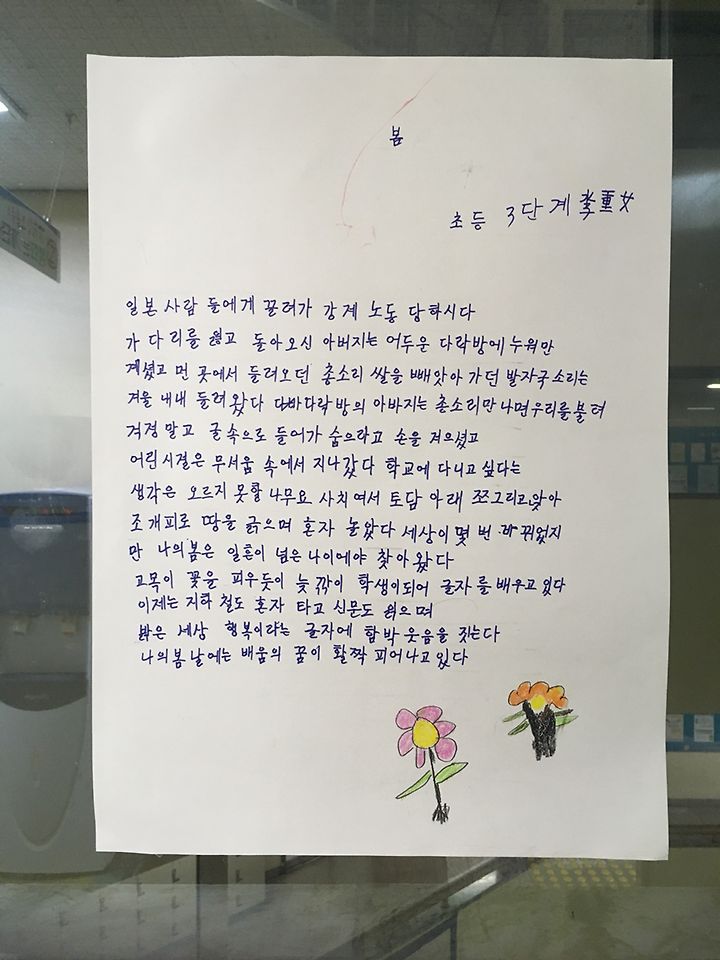 봄
초등 3단계 李重女
일본 사람 들에게 끌려가 강계 노동 당하시다
가 다리를 잃고 돌아오신 아버지는 어두운 다락방에 누워만
계셨고 먼 곳에서 들려오던 총소리 쌀을 빼앗아 가던 발자국 소리는
겨울 내내 들려 왔다 다락방의 아바지는 총소리만 나면 우리를 불러
걱정 말고 굴 속으로 들어가 숨으라고 손을 저으셨고
어린 시절은 무서움 속에서 지나갔다 학교에 다니고 싶다는
생각은 오르지 못할 나무요 사치여서 토담 아래 쪼그리고 앉아
조개피로 땅을 긁으며 혼자 놀았다 세상이 몇 번 바뀌었지
만 나의 봄은 일흔이 넘은 나이에야 찾아 왔다
고목이 꽃을 피우듯이 늦깎이 학생이 되어 글자를 배우고 있다
이제는 지하 철도 혼자 타고 신문도 읽으며
밝은 세상 행복이라는 글자에 함박 웃음을 짓는다
나의 봄 날에는 배움의 꿈이 활짝 피어나고 있다